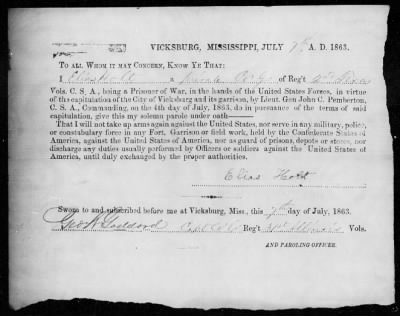 VICKSBURG, MISSISSIPPI, JULY 7th A. D. 1863.
TO ALL WHOM IT MAY CONCERN, KNOW YE THAT:
I Elias Holt a Co. of Reg't 2d Texas
Vols. C. S. A., being a Prisoner of War, in the hands of the United States Forces, in virtue
of the capitulation of the City of Vicksburg and its garrison, by Lieut. Gen John C. Pemberton,
C. S. A., Commanding, on the 4th day of July, 1863, do in pursuance of the terms of said
capitulation, give this my solemn parole under oath——
That I will not take up arms again against the United States, nor serve in any military, police,
or constabulary force in any Fort, Garrison or field work, held by the Confederate States of
America, against the United States of America, nor as guard of prisons, depots or stores, nor
discharge any duties usually performed by Officers or soldiers against the United States of
America, until duly exchanged by the proper authorities.
Elias Holt
Sworn to and subscribed before me at Vicksburg, Miss., this 7th day of July, 1863.
Geo W Goddard Capt Co Reg't Illinois Vols.
AND PAROLING OFFICER.